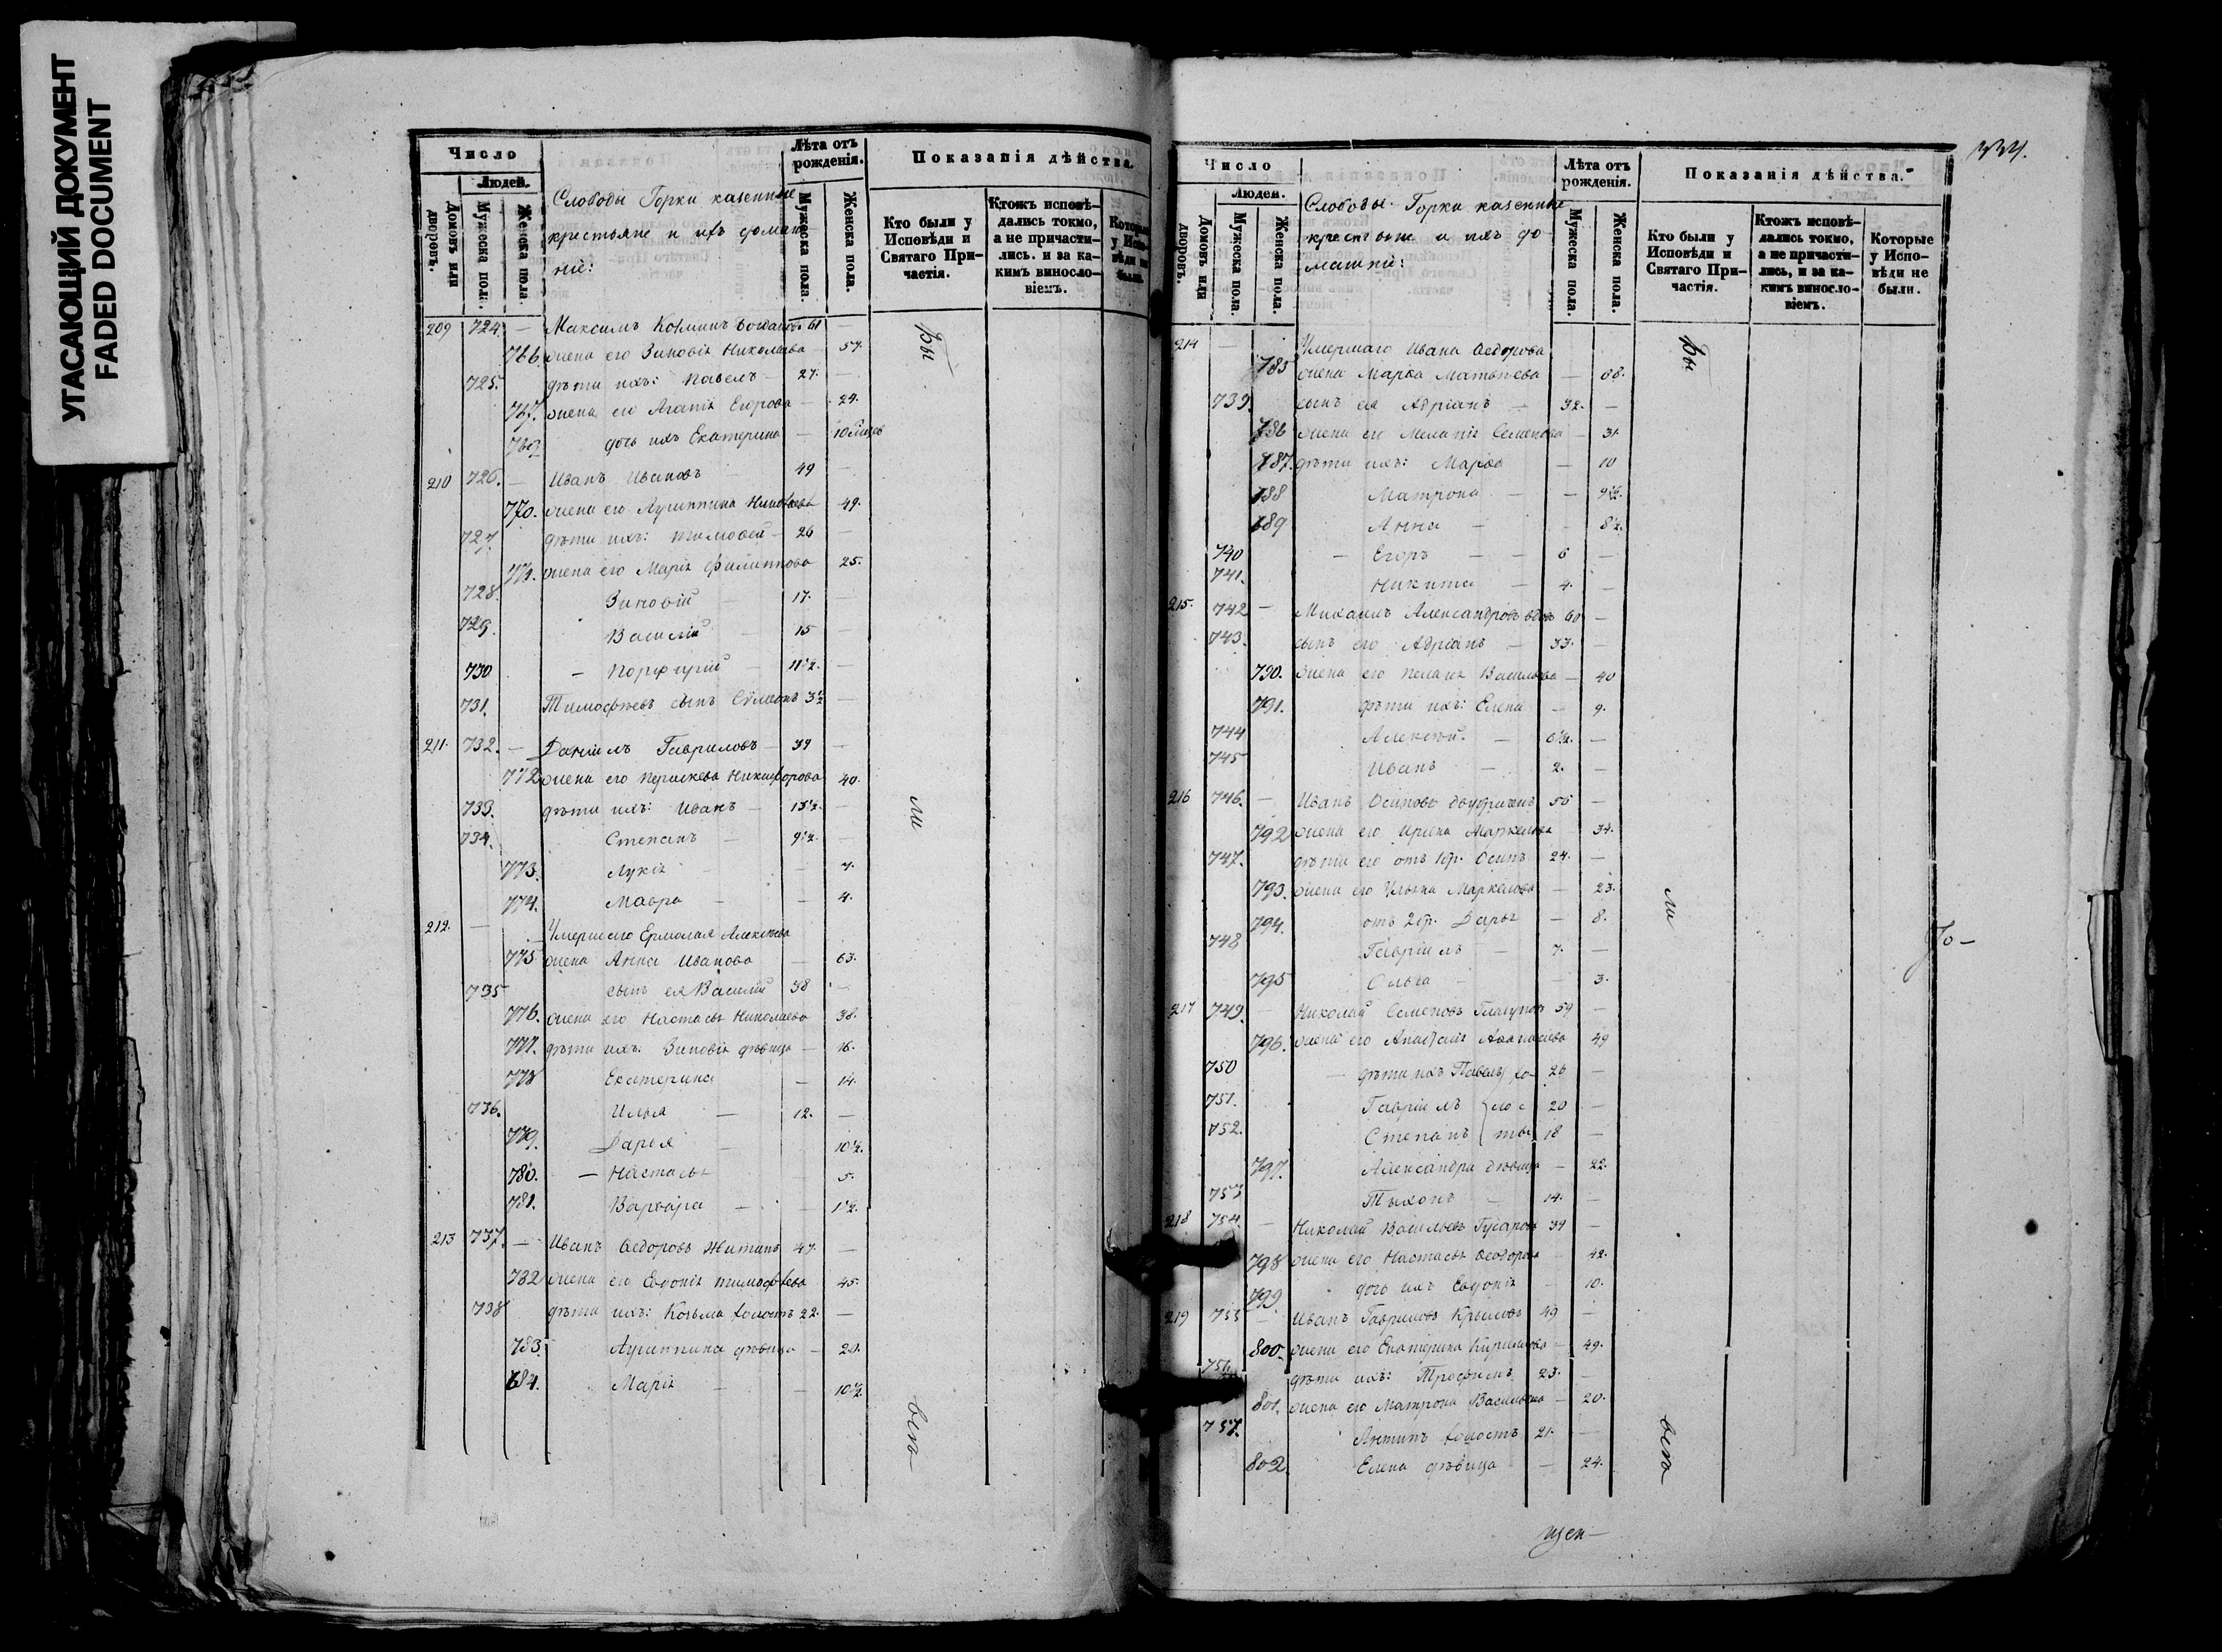 УГАСАЮЩИЙ ДОКУМЕНТ
FADED DOCUMENT
Число
Людей.
Домовъ или дворовъ.
Мужеска пола.
Женска пола.
Слободы Горки казенные
крестьяне и ихъ домаш-
нiе:
Лѣта отъ рожденія.
Мужеска пола.
Женска пола.
Показанія дѣйства.
Кто были у Исповѣди и Святаго При-частія.
Ктожъ исповѣ-дались токмо, а не причасти-лись. и за ка-кимъ виносло-віемъ.
Которые у Испо-вѣди не были.
209 724. — Максимъ 61 —
766. жена его Зиновія Николаева — 57.
725. дѣти ихъ: Павелъ — 27. —
767. жена его Агапія Егорова — 24.
769 дочь ихъ Екатерина — 10 мѣсяцов
210 726. — Иванъ Ивановъ 49 —
770. жена его Агриппина 49.
727. дѣти ихъ: Тимофей — 26 —
771. жена его Марія Филиппова 25.
728. Зиновій — 17. —
729. Василій — 15 —
730 — Порфирій — 11 1/2. —
731. Тимофѣевъ сынъ Симеонъ 3 1/2 —
211. 732. — Даніилъ Гавриловъ — 39 —
772 жена его Параскева Никифорова 40.
733. дѣти ихъ: Иванъ — 13 1/2. —
734. Степанъ — 9 1/2. —
773. Лукія — — 7.
774. Мавра — — 4.
212. — Умершего Ермолая Алексѣева
775 жена Анна Иванова — 63.
735 сынъ ея Василій 38 —
776. жена его Настасья Николаева 38.
777. дѣти ихъ: Зиновія дѣвица — 16.
778 Екатерина — 14.
736. Илья — 12. —
779. Дарья — 10 1/2.
780. — Настасья — 5.
781. Варвара — — 1 1/2.
213 737. — Иванъ Ѳедоровъ Житинъ 47. —
782 жена его Евдокія Тимофѣева 45.
738 дѣти ихъ: Козьма холостъ 22. —
783. Агриппина дѣвица — 20.
684. Марія — — 10 1/2.
Бы
ли
всѣ
334.
Число
Людей.
Домовъ или дворовъ.
Мужеска пола.
Женска пола.
Слободы Горки казенные
крестьяне и ихъ до-
машніе:
Лѣта отъ рожденія.
Мужеска пола.
Женска пола.
Показанія дѣйства.
Кто были у Исповѣди и Святаго При-частія.
Ктожъ исповѣ-дались токмо, а не причасти-лись, и за ка-кимъ виносло-віемъ.
Которые у Испо-вѣди не были.
214 — Умершаго Ивана Ѳедорова
785 жена Марѳа Матвѣева — 68.
739. сынъ ея Адріанъ — 32. —
786 жена его Меланія Семенова — 31.
787. дѣти ихъ: Марѳа — 10
788 Матрона — — 9 1/2.
689. Анна — — 8 1/2.
740 — Егоръ — — 6 —
741. Никита — 4. —
215. 742 — Михаилъ Александровъ вдовъ 60 —
743. сынъ его Адріанъ — 33. —
790. жена его Пелагія Васильева — 40
791. дѣти ихъ: Елена — 9.
744 Алексѣй. — 6 1/2. —
745 Иванъ — 2. —
216 746. — Иванъ Осиповъ двубраченъ 56 —
792 жена его Ирина Маркелова — 34.
747. дѣти его отъ 1бр. Осипъ 24. —
793. жена его Ульяна Маркелова — 23.
794. отъ 2бр. Дарья — 8.
748 Гавріилъ — 7. —
795 Ольга — — 3.
217 749. — Николай Семеновъ Глагуновъ 59 —
796. жена его Анастасія Аѳанасіева 49
750 — дѣти ихъ Павелъ хо- 26 —
751. Гавріилъ лос 20 —
752. Степанъ ты 18 —
797. Александра дѣвица — 22.
753 Тихонъ — 14. —
218 754. — Николай Васильевъ Гусаровъ 39 —
798 жена его Настасья Ѳедорова — 42.
799 дочь ихъ Евдокія — 10.
219 755 — Иванъ Гавриловъ Крыловъ 49 —
800. жена его Екатерина Кирилова — 49.
756 дѣти ихъ: Трофимъ 23. —
801. жена его Матрона Васильева — 20.
757. Антипъ холостъ 21. —
802. Елена дѣвица — 24.
Бы
ли
всѣ
щен—